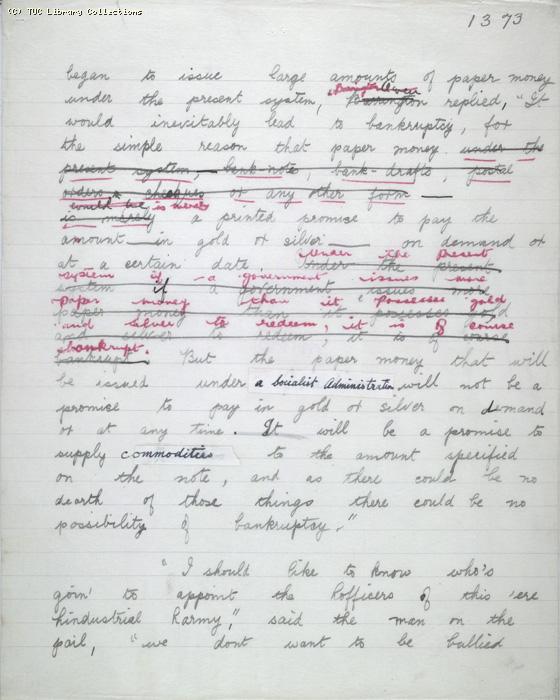 (c) TUC Library Collections
1373
began to issue large amounts of paper money
Barrington Owen
under the present system, Barrington replied, "It
would inevitably lead to bankruptcy, for
the simple reason that paper money under the
present system, bank-note, bank-drafts, postal
orders cheques or any other form
would be is merely
is merely a printed promise to pay the
amount in gold or silver on demand or
under the present
at a certain date Under the present
system if a government issues more
system if a Government issues more
paper money than it possesses gold
paper money than it possesses gold
and silver to redeem, it is of course
and silver to redeem, it is of course
bankrupt.
bankrupt. But the paper money that will
be issued under a Socialist Administration will not be a
promise to pay in gold or silver on demand
or at any time. It will be a promise to
supply commodities to the amount specified
on the note, and as there could be no
dearth of those things there could be no
possibility of bankruptcy."
"I should like to know who's
goin' to appoint the hofficers of this 'ere
hindustrial harmy," said the man on the
pail, "we dont want to be bullied